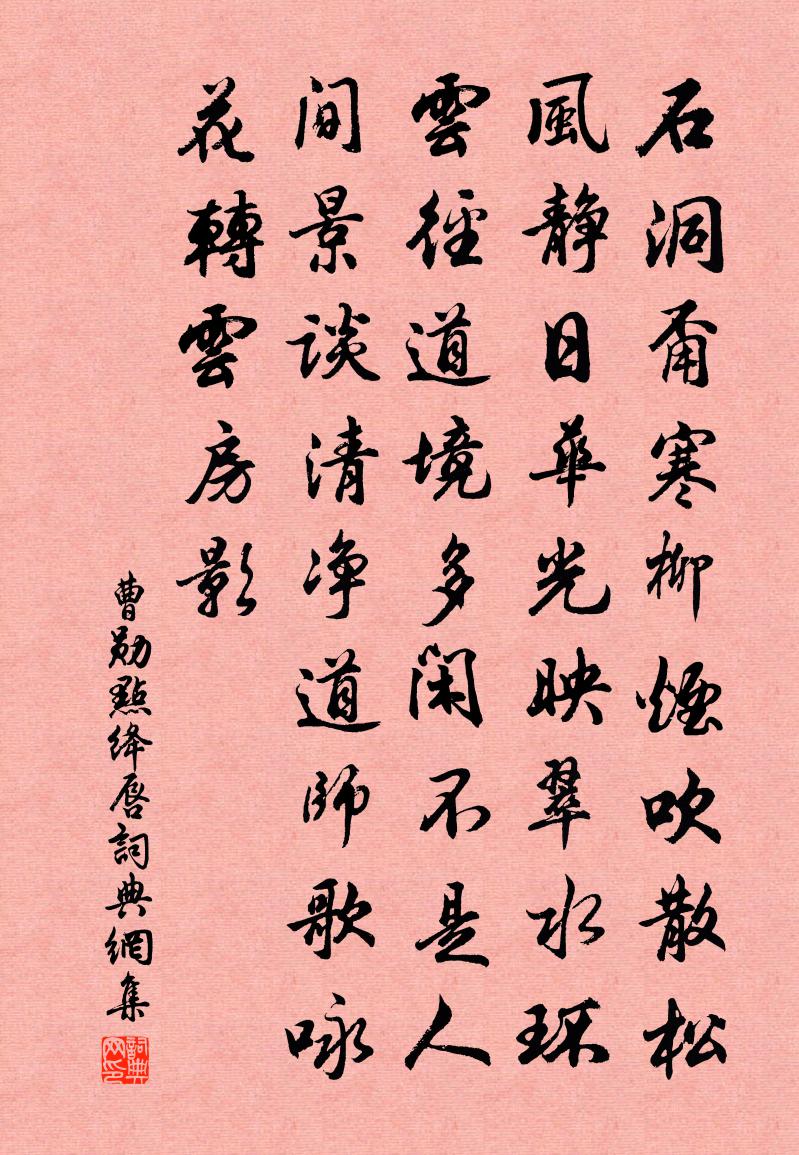 石洞甭寒柳煙吹散松
風静日華光映翠水环
雲徑道境多閑不是人
間景談清净道師歌咏
花轉雲房影
曹勛點絳唇詞典網集
詞典网印